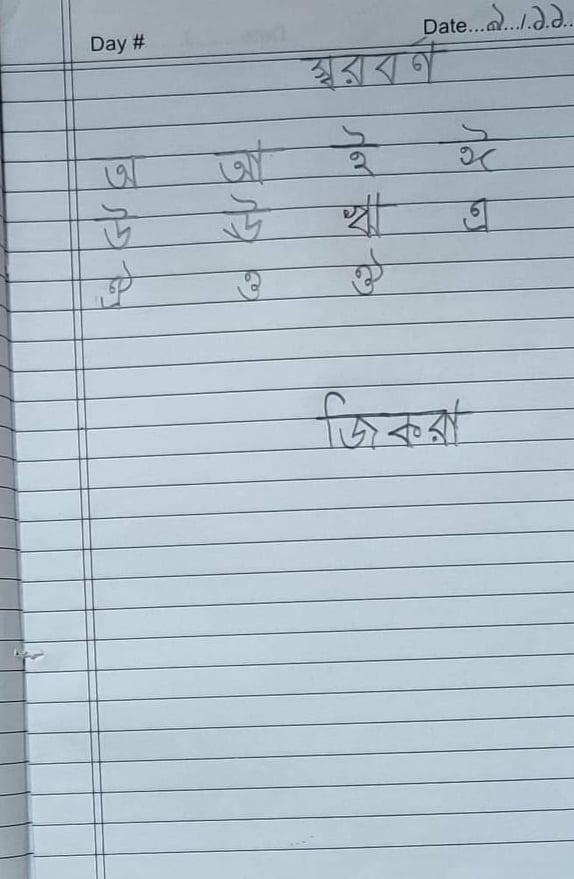 Day #
Date...৯.../.১.১..
স্বরবর্ণ
অ আ ই ঈ
উ ঊ ঋ এ
ঐ ও ঔ
জিকরা